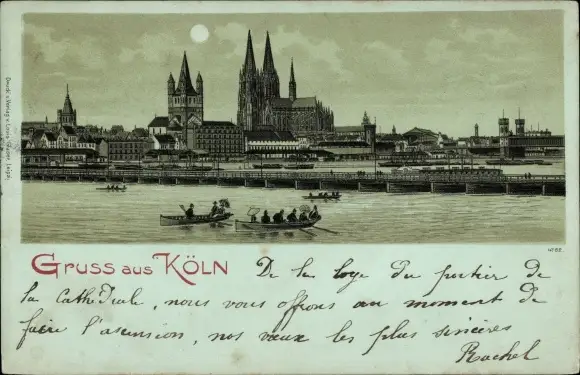 Druck u. Verlag v. Louis Glaser, Leipzig.
4188
Gruss aus Köln
De la loge du portier de
la Cathédrale, nous vous offrons au moment de
faire l'ascension, nos vœux les plus sincères
Rachel